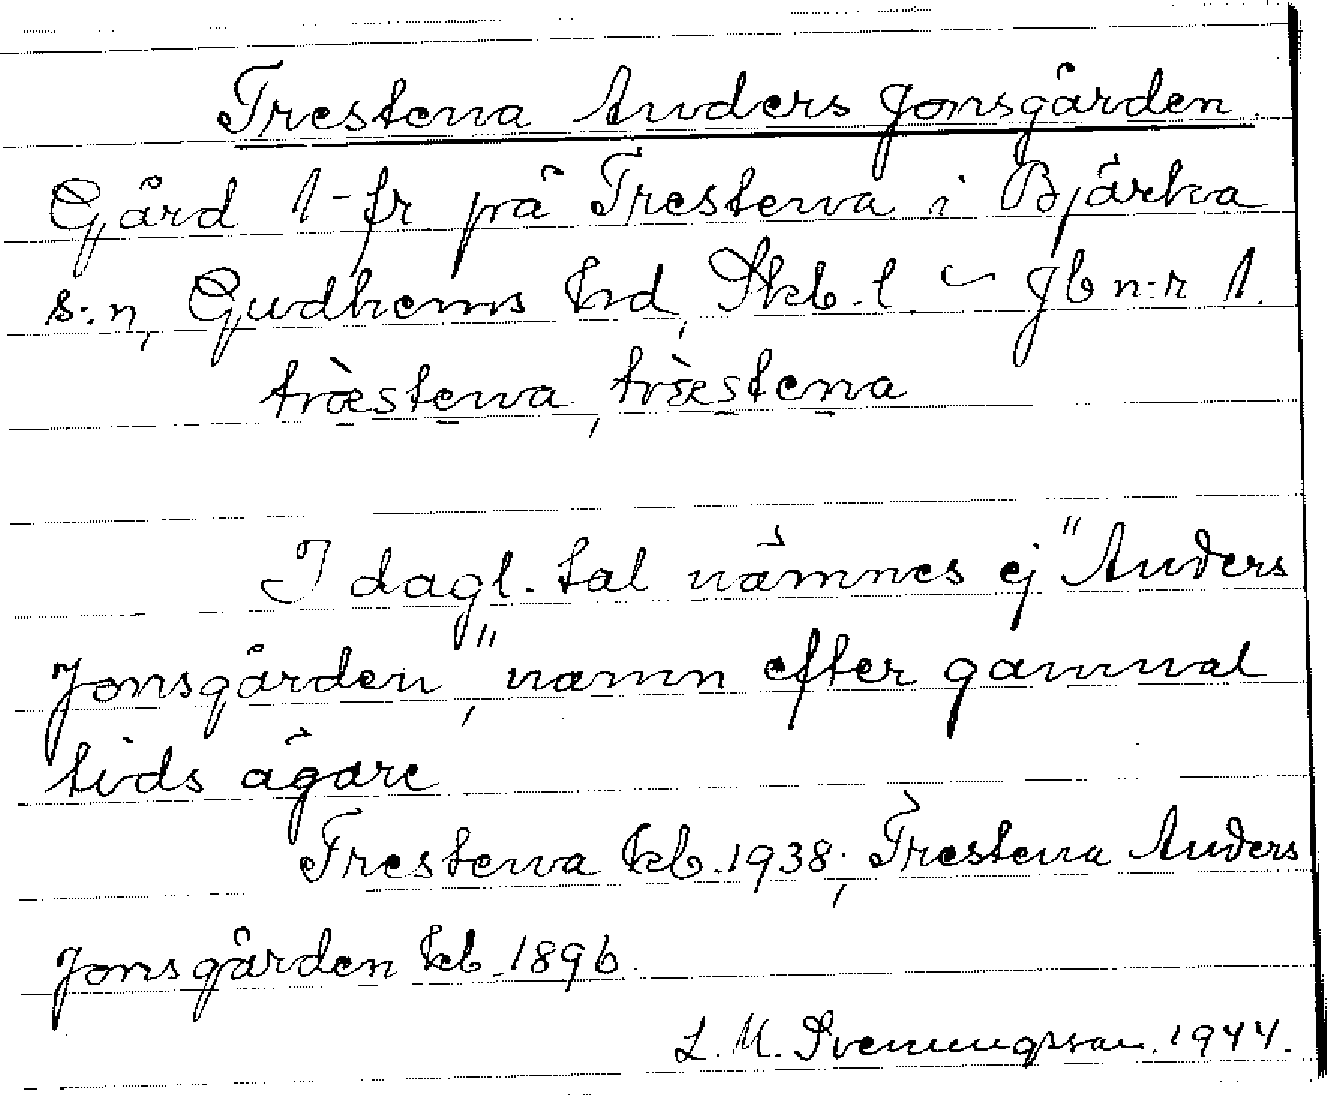 Trestena Anders Jonsgården
Gård 1-fr på Trestena i Bjärka
s:n, Gudhems hd, Skb. l. ~ Jb n:r 1.
træ̀stena, træ̀stena
I dagl. tal nämnes ej "Anders
Jonsgården", namn efter gammal
tids ägare
Trestena kb. 1938; Trestena Anders
Jonsgården kb. 1896.
L. M. Svenungsson. 1944.